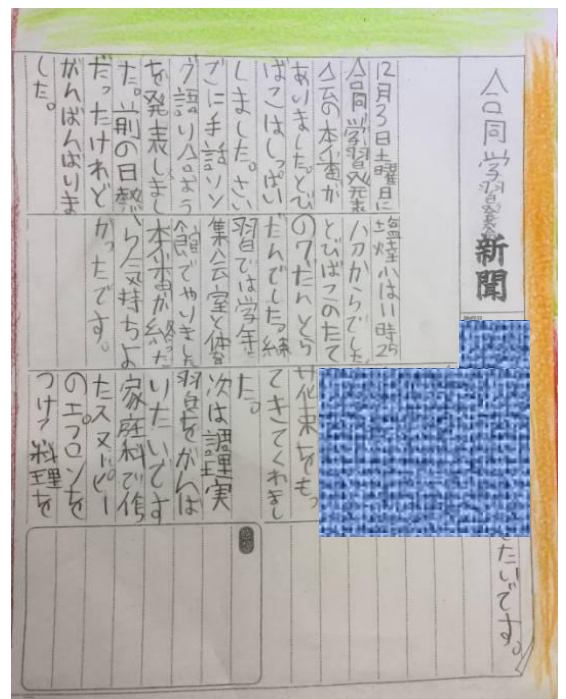 合同学習発表新聞
12月3日土曜日に
合同学習発表
会の本番が
ありました。とび
ばこはしっぱい
しました。さい
ごに手話ソン
グ語り合おう
を発表しまし
た。前の日熱
だったけれど
がんばんばりま
した。
塩焼小は11時25
分からでした。
とびばこのたて
の7だんと
だんでした。練
習では学年
集会室と体育
館でやりました
本番が終った
ら気持ちよ
かったです。
花束をもっ
てきてくれまし
た。
次は調理実
習をがんば
りたいです
家庭科で作っ
たスヌーピー
のエプロンを
つけて料理を
たいです。